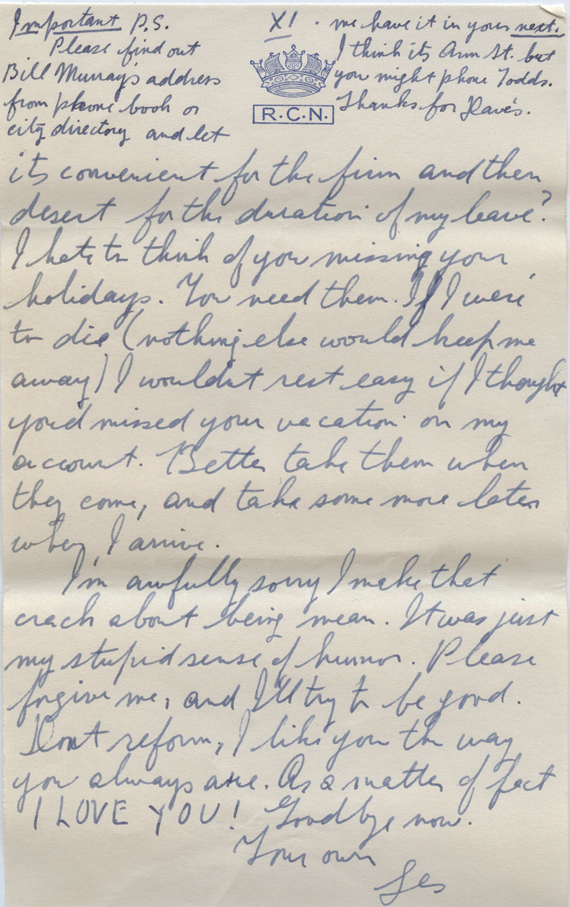 Important P.S.
Please find out
Bill Murray's address
from phone book or
city directory and let
XI. me have it in yours next.
I think its Ann St. but
you might phone Todds.
Thanks. for Dave's.
R.C.N.
its convenient for the firm and then
desert for the duration of my leave?
I hate to think of you missing your
holidays. You need them. If I were
to die (nothing else would keep me
away) I wouldn't rest easy if I thought
you'd missed your vacation on my
account. Better take them when
they come, and take some more later
when I arrive.
I'm awfully sorry I make that
crack about being mean. It was just
my stupid sense of humor. Please
forgive me, and I'll try to be good.
Dont reform, I like you the way
you always are. As a matter of fact
I LOVE YOU! Goodbye now.
Your own
Les